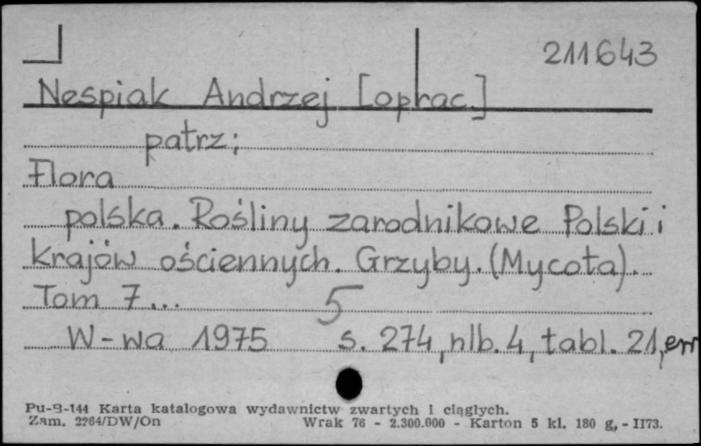 211643
Nespiak Andrzej [oprac.]
patrz;
Flora
polska. Rośliny zarodnikowe Polski i
Krajów ościennych. Grzyby. (Mycota).
Tom 7... 5
W-wa 1975 s. 274, nlb. 4, tabl. 21, err
Pu-9-144 Karta katalogowa wydawnictw zwartych i ciągłych.
Zam. 2264/DW/On Wrak 76 - 2.300.000 - Karton 5 kl. 180 g, - II73.